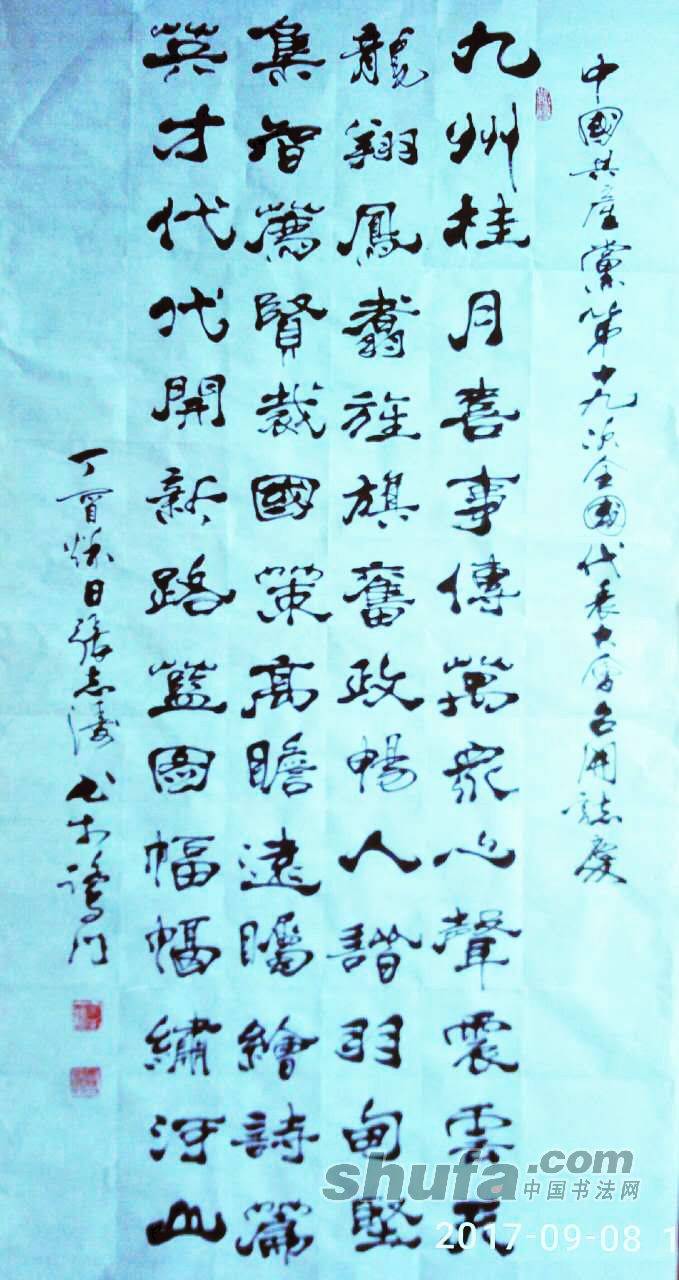 中國共產黨第十九次全國代表大會召開誌慶
九州桂月喜事傳萬衆心聲震雲天
龍翔鳳翥旌旗奮政暢人諧羽甸堅
集智薦賢裁國策高瞻遠矚繪詩篇
英才代代開新路藍圖幅幅繡河山
丁酉秋日張志濤书於鷺门
shufa.com
中国书法网
2017-09-08 1